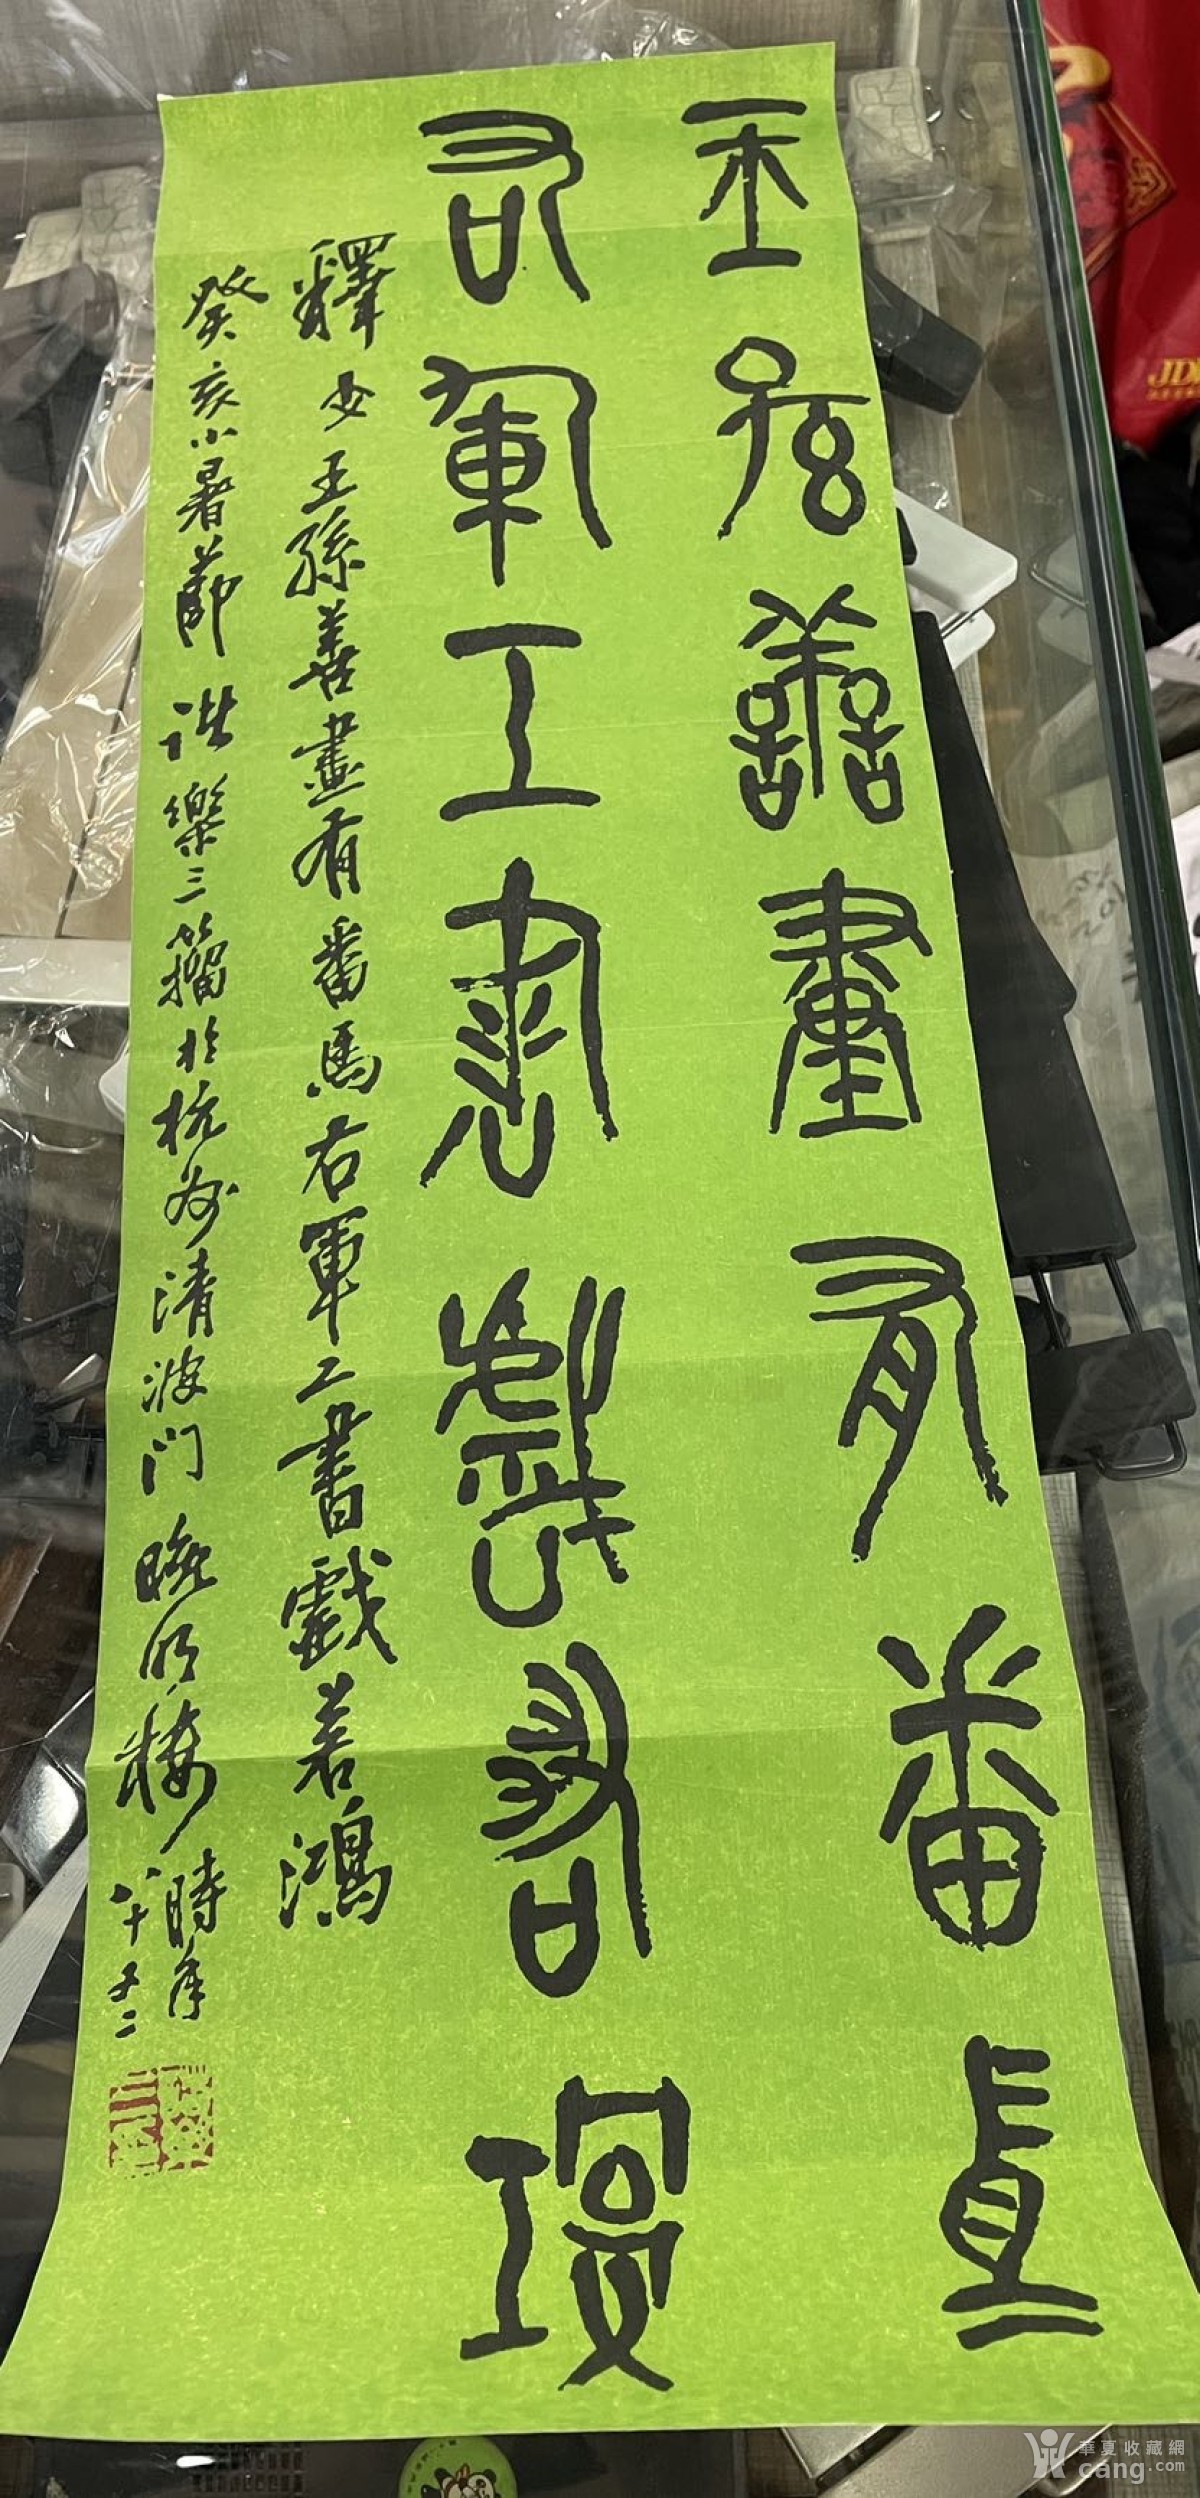 王孫善畫有番馬
右軍工書戲若鴻
釋文王孫善畫有番馬右軍工書戲若鴻
癸亥小暑節 诸樂三籀於杭州清波门 樓時年八十又二
華夏收藏網
cang.com